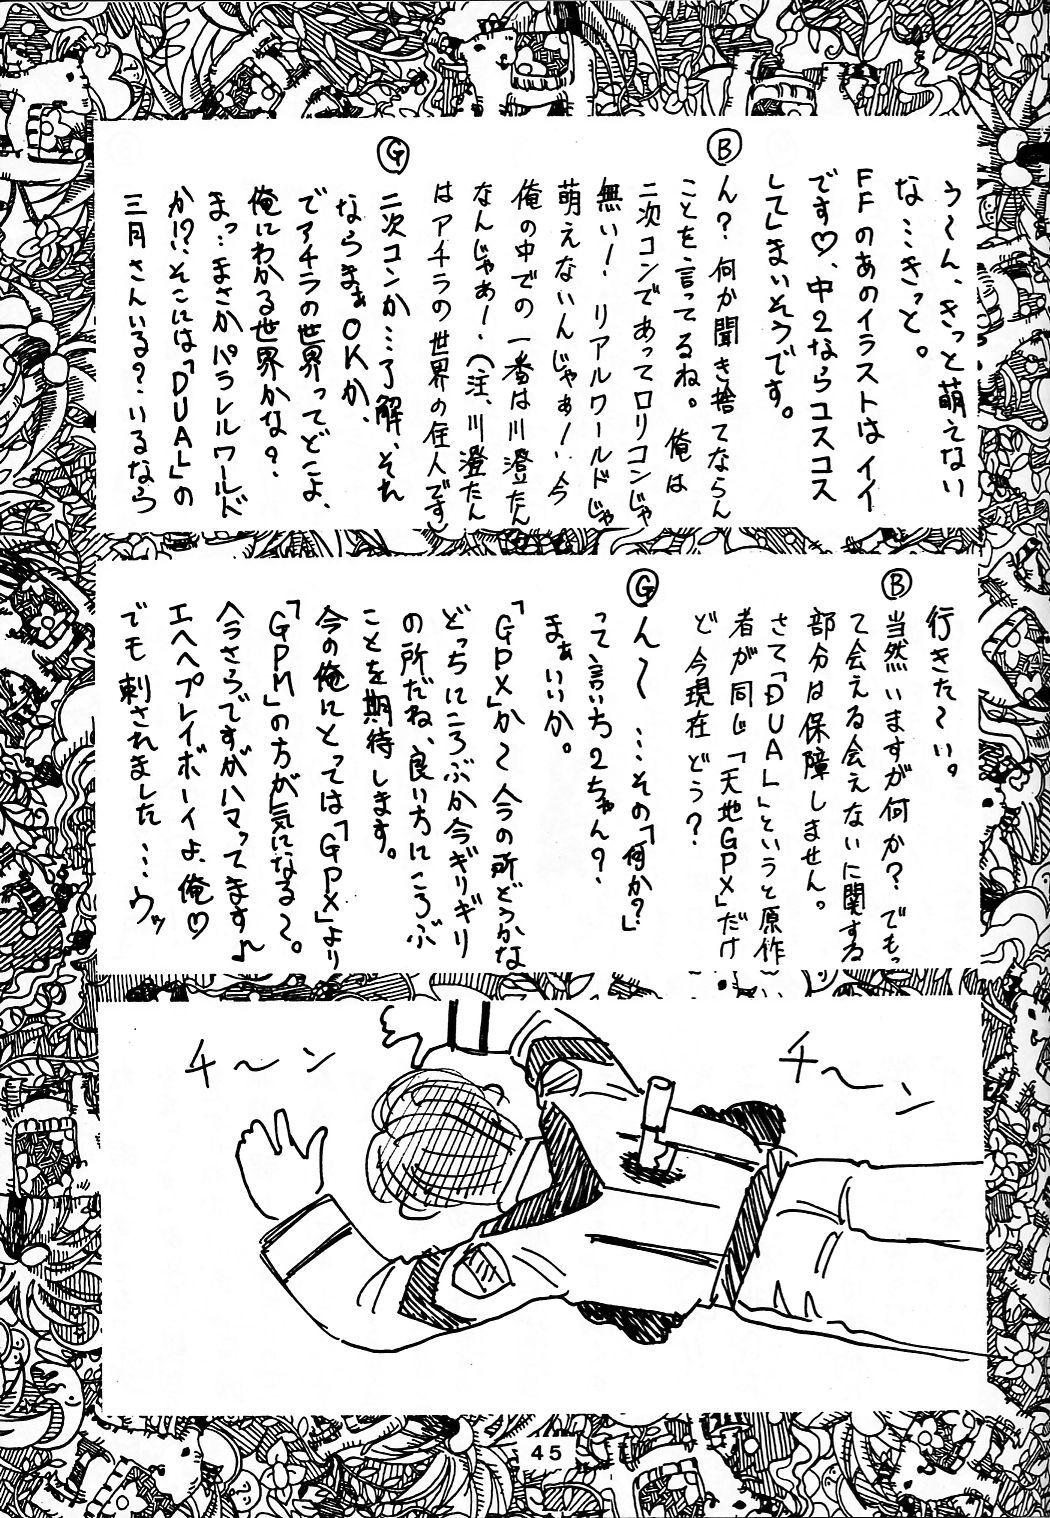 う〜ん、きっと萌えない
な…きっと。
FFのあのイラストはイイ
です♡、中2ならコスコス
してしまいそうです。
Ⓑ
ん?何か聞き捨てならん
ことを言ってるね。俺は
二次コンであってロリコンじゃ
無い!リアルワールドじゃ
萌えないんじゃぁ!今
俺の中での一番は川澄たん
なんじゃあ!(注、川澄たん
はアチラの世界の住人です)
Ⓖ
二次コンか…了解、それ
ならまぁOKか、
でアチラの世界ってどこよ、
俺にわかる世界かな?
まっ…まさかパラレルワールド
か!?そこには「DUAL」の
三月さんいる?いるなら
行きた〜い。
Ⓑ
当然いますが何か?でもっ
て会える会えないに関する
部分は保障しません。
さて「DUAL」というと原作
者が同じ「天地GPX」だけ
ど今現在どう?
Ⓖ
ん〜…その「何か?」
って言い方2ちゃん?
まぁいいか。
「GPX」か〜今の所どうかな
どっちにころぶか今ギリギリ
の所だね、良い方にころぶ
ことを期待します。
今の俺にとっては「GPX」より
「GPM」の方が気になる〜。
今さらですがハマってます♪
エヘヘプレイボーイよ、俺♡
でも刺されました…ウッ
チ〜ン
チ〜ン
45